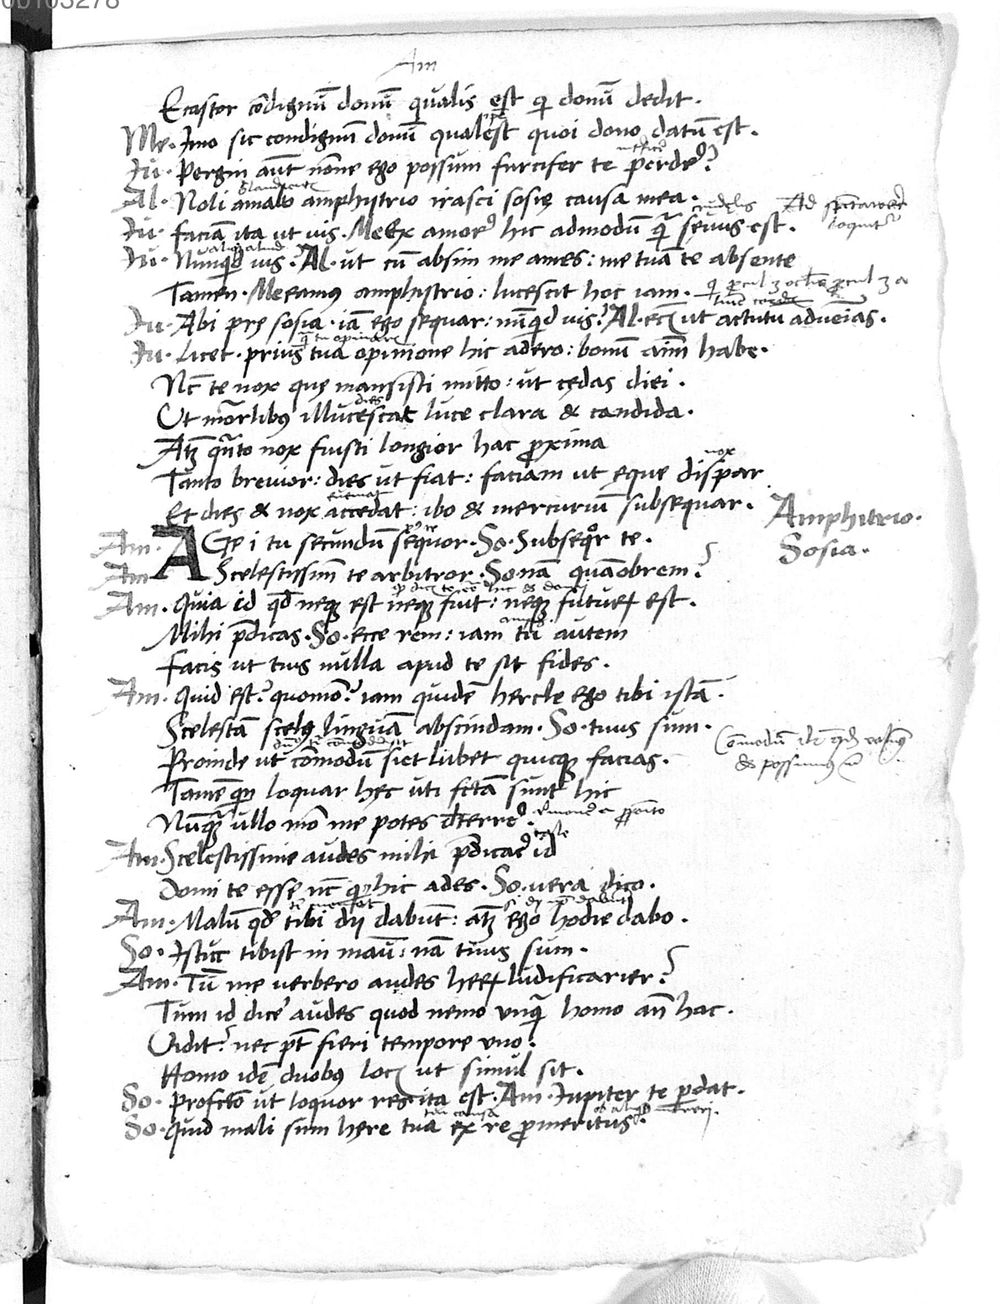 00103278
Am
Ecastor cōdignū donū qualis est qi donū dedit.
Me. Imo sic condignū donū quale est quoi dono datū est.
Iu. Pergin aūt nōne ego possum furcifer te perdere?
Al. Noli amabo amphitrio irasci sosię causa mea.
Iu. faciā ita ut uis. Me. Ex amore hic admodū quā sęuus est.
crudelis
Ad spectatores loquitur
Iu. Nunqd uis? Al. ut cū absim me ames: me tuā te absente
Tamen. Me. Eamus amphitrio: lucescit hoc iam.
Iu. Abi pręe sosia. iā ego sequar: nūqd uis? Al. etiā ut actutū adueias.
Iu. Licet. prius tua opinione hic adero: bonū aīm habe.
Nc te nox quę mansisti mitto: ut cędas diei.
dies
Ut mortlibus illucescat luce clara & candida.
Atq quāto nox fuisti longior hac proxima
nox
Tanto breuior: dies ut fiat: faciam ut ęque dispar
Et dies & nox accedat: ibo & mercuriū subsequar.
Amphitrio.
Sosia.
Am. AGe i tu secundū sequor. So. Subseqr te.
Am. Scelestissimū te arbitror. So. nā quāobrem?
Am. Quia id qd neq est neq fuit: neq futurū est.
Mihi pdicas. So. Ecce rem: iam tu autem
Facis ut tuis nulla apud te sit fides.
Am. Quid est? quomō? iam quidē hercle ego tibi istā
Scelestā scelus linguā abscindam. So. tuus sum.
Proinde ut cōmodū siet lubet quicq facias.
Tamē qn loquar hęc uti fcta sunt hic
Nūquā ullo mō me potes dterrere.
Am. Scelestissime audes mihi pdicare id
Domi te esse nc qui hic ades. So. uera dico.
Am. Malū qd tibi dij dabūt: atq ego hodie dabo.
So. Istuc tibist in manū: nā tuus sum.
Am. Tū me uerbero audes herū ludificarier?
Tum id dicere audes quod nemo unquā homo an hac.
Uidit? nec pt fieri tempore uno.
Homo idē duobus locis ut simul sit.
So. Profcto ut loquor res ita est. Am. Iupiter te pdat.
So. Quid mali sum hęre tua ex re promeritus.